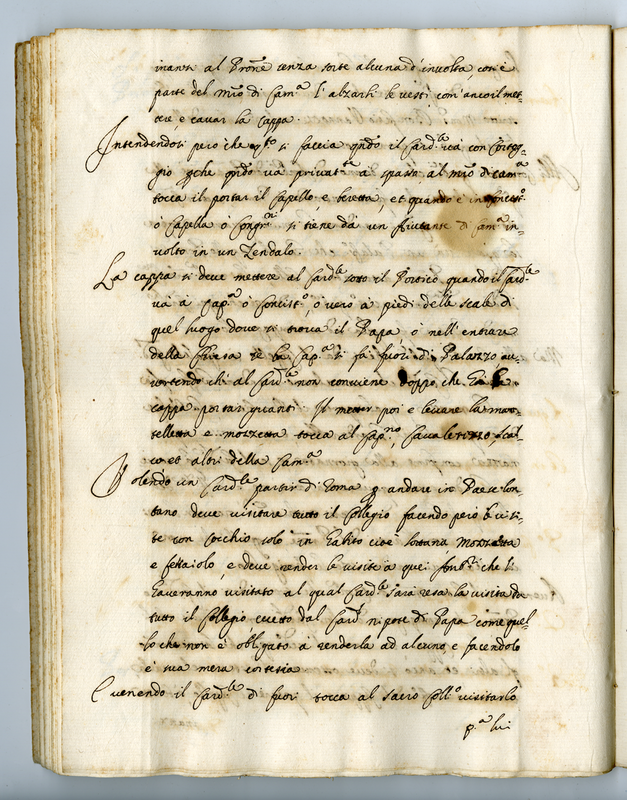 inanzi al Prōne senza sorte alcuna d'involta, così è
parte del mrō di Cam.ª l'alzarli le vesti, com'ancoil met=
tere, e cavar la cappa.
Intendendosi però che q̄sto si faccia qn̄do il Card.le và con Corteg=
gio ꝑche qn̄do và privat.te à spasso al mrō di cam.ª
tocca il portar il Capello, e beretta, et quando è in Concist.º
ò Capella ò Congr.ni si tiene da un Aiutante di Cam.ª in=
volto in un Zendalo.
La cappa si deve mettere al Card.le sotto il Portico quando il Card.le
và à Cap.ª ò Concist.º, ò vero à piedi delle scale di
quel luogo dove si trova il Papa ò nell'entrare
della Chiesa se la Cap.ª si fà fuori di Palazzo av=
vertendo ch'al Card.le non conviene doppo che hà la
cappa portar guanti. Il metter poi e levare la man=
telletta e mozzetta tocca al Cap.no, Cavalerizzo, Scal=
co et altri della Cam.ª
Volendo un Card.le partir di Roma ꝑ andare in Paese lon=
tano deve visitare tutto il Collegio facendo però le visi=
te con Cocchio solo in habito cioè sottana, Mozzetta
e fettaiolo, e deve render le visite à quei che l'
haveranno visitato al qual Card.le sarà resa la visita da
tutto il Collegio eccetto dal Card.l nipote di Papa come quel=
lo che non è obligato à renderla ad alcuno, e facendolo
è sua mera cortesia
E venendo il Card.le di fuori tocca al Sacro Coll.º visitarlo
p.ª lui